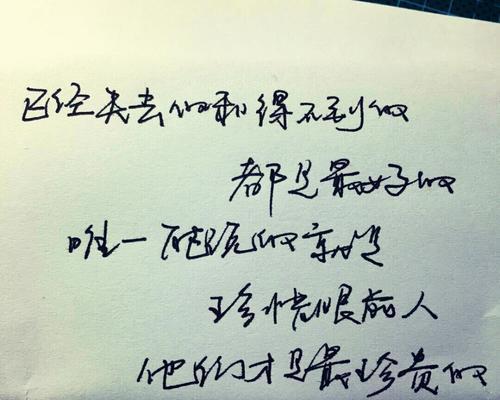 已经失去的和得不到的
都是最好的
唯一能说的就是
珍惜眼前人
他们才是最珍贵的